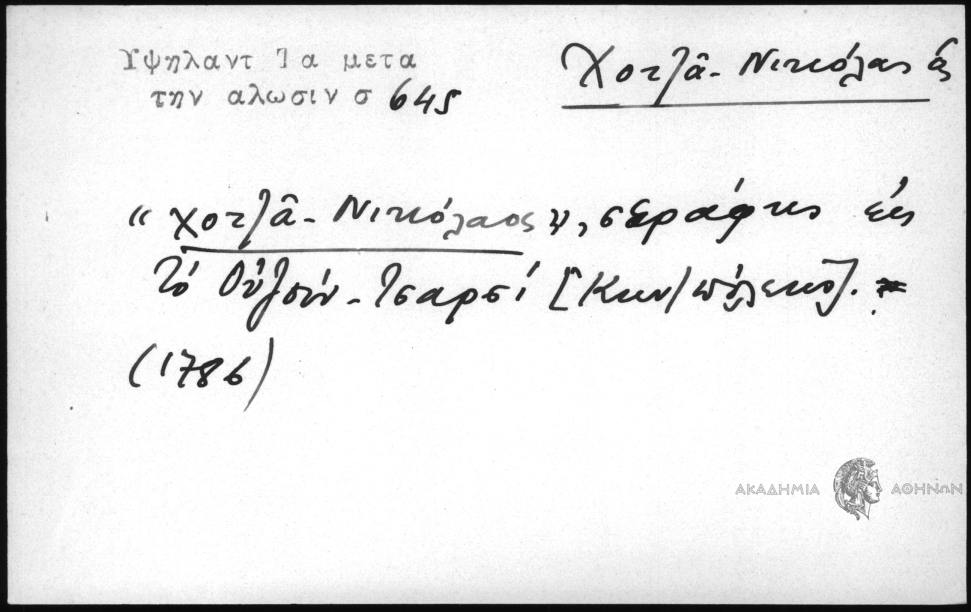 Υψηλαντ Ἱα μετα
την αλωσιν σ 645
Χοτζᾶ - Νικόλας
"Χοτζᾶ - Νικόλαος", σεράφης εἰς
τὸ Οὐζοὺν - Τσαρσὶ [Κων/πόλεως].
(1786)
ΑΚΑΔΗΜΙΑ ΑΘΗΝΩΝ